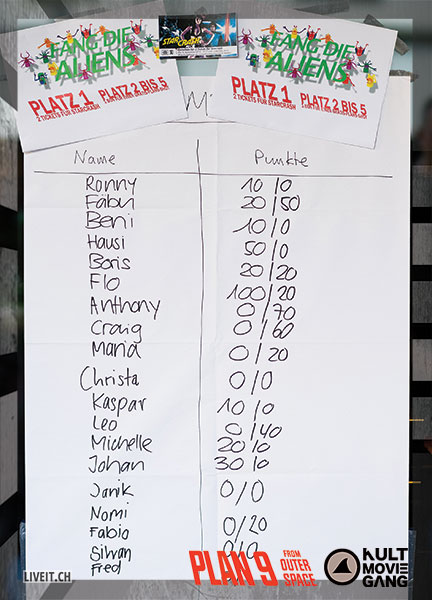 FANG DIE
ALIENS
PLATZ 1
2 TICKETS FÜR STARCRASH
PLATZ 2 BIS 5
STAR CRASH
FANG DIE
ALIENS
PLATZ 1
2 TICKETS FÜR STARCRASH
PLATZ 2 BIS 5
Name Punkte
Ronny 10/0
Fäbu 20/50
Beni 10/0
Hausi 50/0
Boris 20/20
Flo 100/20
Anthony 0/70
Craig 0/60
Maria 0/20
Christa 0/0
Kaspar 10/0
Leo 0/40
Michelle 20/0
Johan 30/0
Janik 0/0
Nomi
Fabio 0/20
Silvan 0/0
Fred
LIVEIT.CH
PLAN 9 FROM OUTER SPACE
KULT MOVIE GANG